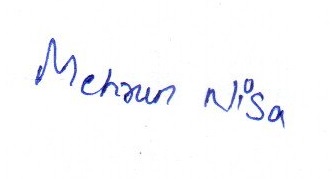 Mehrun Nisa